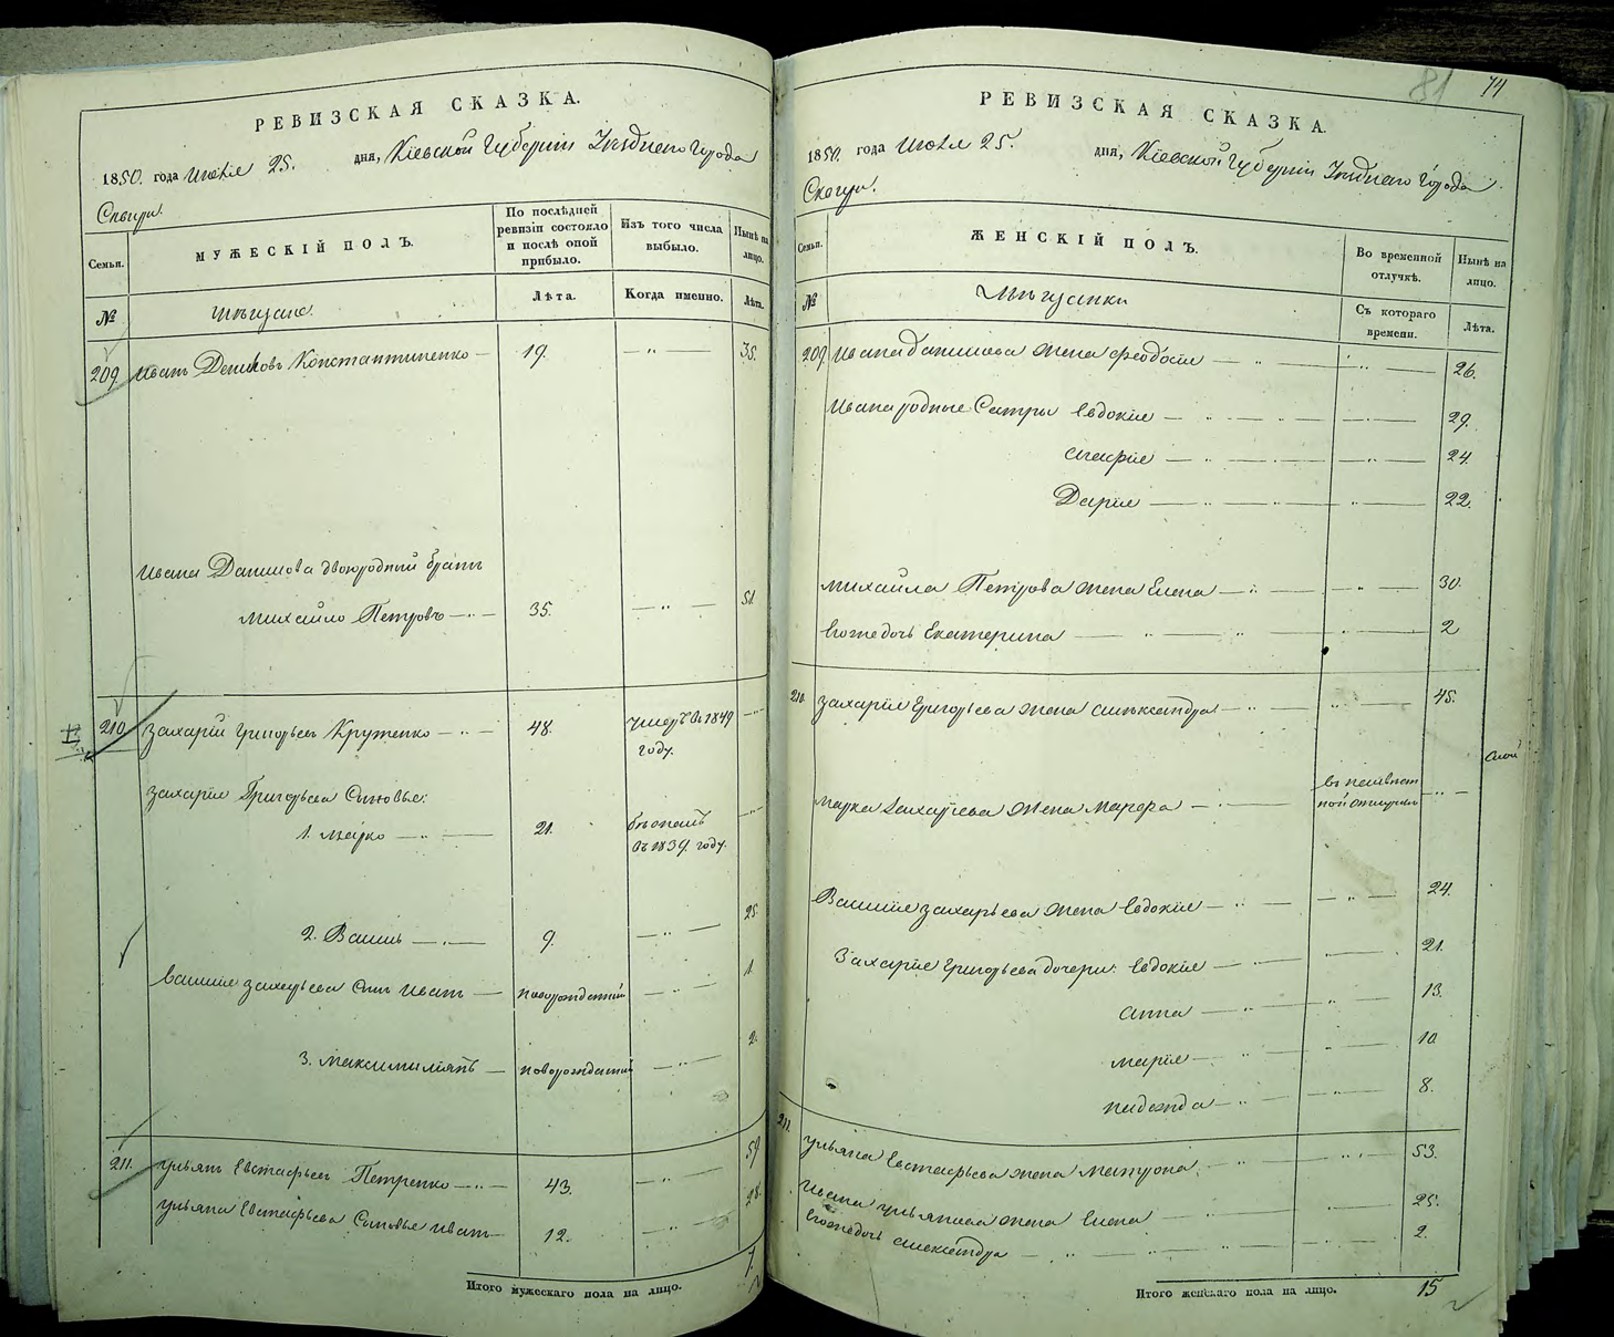 РЕВИЗСКАЯ СКАЗКА.
1850. года Июля 25. дня, Кіевской Губерніи Уѣзднаго Города
Сквиры.
Семьи.
МУЖЕСКІЙ ПОЛЪ.
По послѣдней
ревизіи состояло
и послѣ оной
прибыло.
Изъ того числа
выбыло.
Нынѣ на
лицо.
№
Мѣщане.
Лѣта.
Когда именно.
Лѣта.
209 Иванъ Даниловъ Константиненко — 19. — " — 35.
Ивана Данилова двоюродный братъ
Михайло Петровъ — " — 35. — " — 51.
210 Захарій Григорьевъ Крутенко — " — 48. умер въ 1849 — " —
году.
Захарія Григорьева Сыновья:
1. Марко — " — 21. бѣжалъ — " —
въ 1839. году.
2. Василь — " — 9. — " — 25.
Василія Захарьева сынъ Иванъ — новорожденный — " — 1.
3. Максимиліянъ — новорожденный — " — 2.
211. Ульянъ Евстафьевъ Петренко — " — 43. — " — 59
Ульяна Евстафьева Сыновья Иванъ — 12. — " — 28.
Итого мужескаго пола на лицо. 7.
81 74
РЕВИЗСКАЯ СКАЗКА.
1850. года Июля 25. дня, Кіевской Губерніи Уѣзднаго Города
Сквиры.
Семьи.
ЖЕНСКІЙ ПОЛЪ.
Во временной
отлучкѣ.
Нынѣ на
лицо.
№
Мѣщанки
Съ котораго
времени.
Лѣта.
209 Ивана Данилова жена Феодосія — " — 26.
Ивана родные Сестры Евдокія — " — 29.
Марія — " — 24.
Дарія — " — 22.
Михайла Петрова жена Елена — " — 30.
Егоже дочь Екатерина — " — 2
210 Захарія Григорьева жена Александра — " — 45.
Марка Захарьева жена Марфа — " — въ неизвѣст — " —
ной отлучкѣ
Василія Захарьева жена Евдокія — " — 24.
Захарія Григорьева дочери: Евдокія — " — 21.
Анна — " — 13.
Марія — " — 10
Надежда — " — 8.
211. Ульяна Евстафьева жена Матрона — " — 53.
Ивана Ульянова жена Елена — " — 25.
Егоже дочь Александра — " — 2.
Итого женскаго пола на лицо. 15